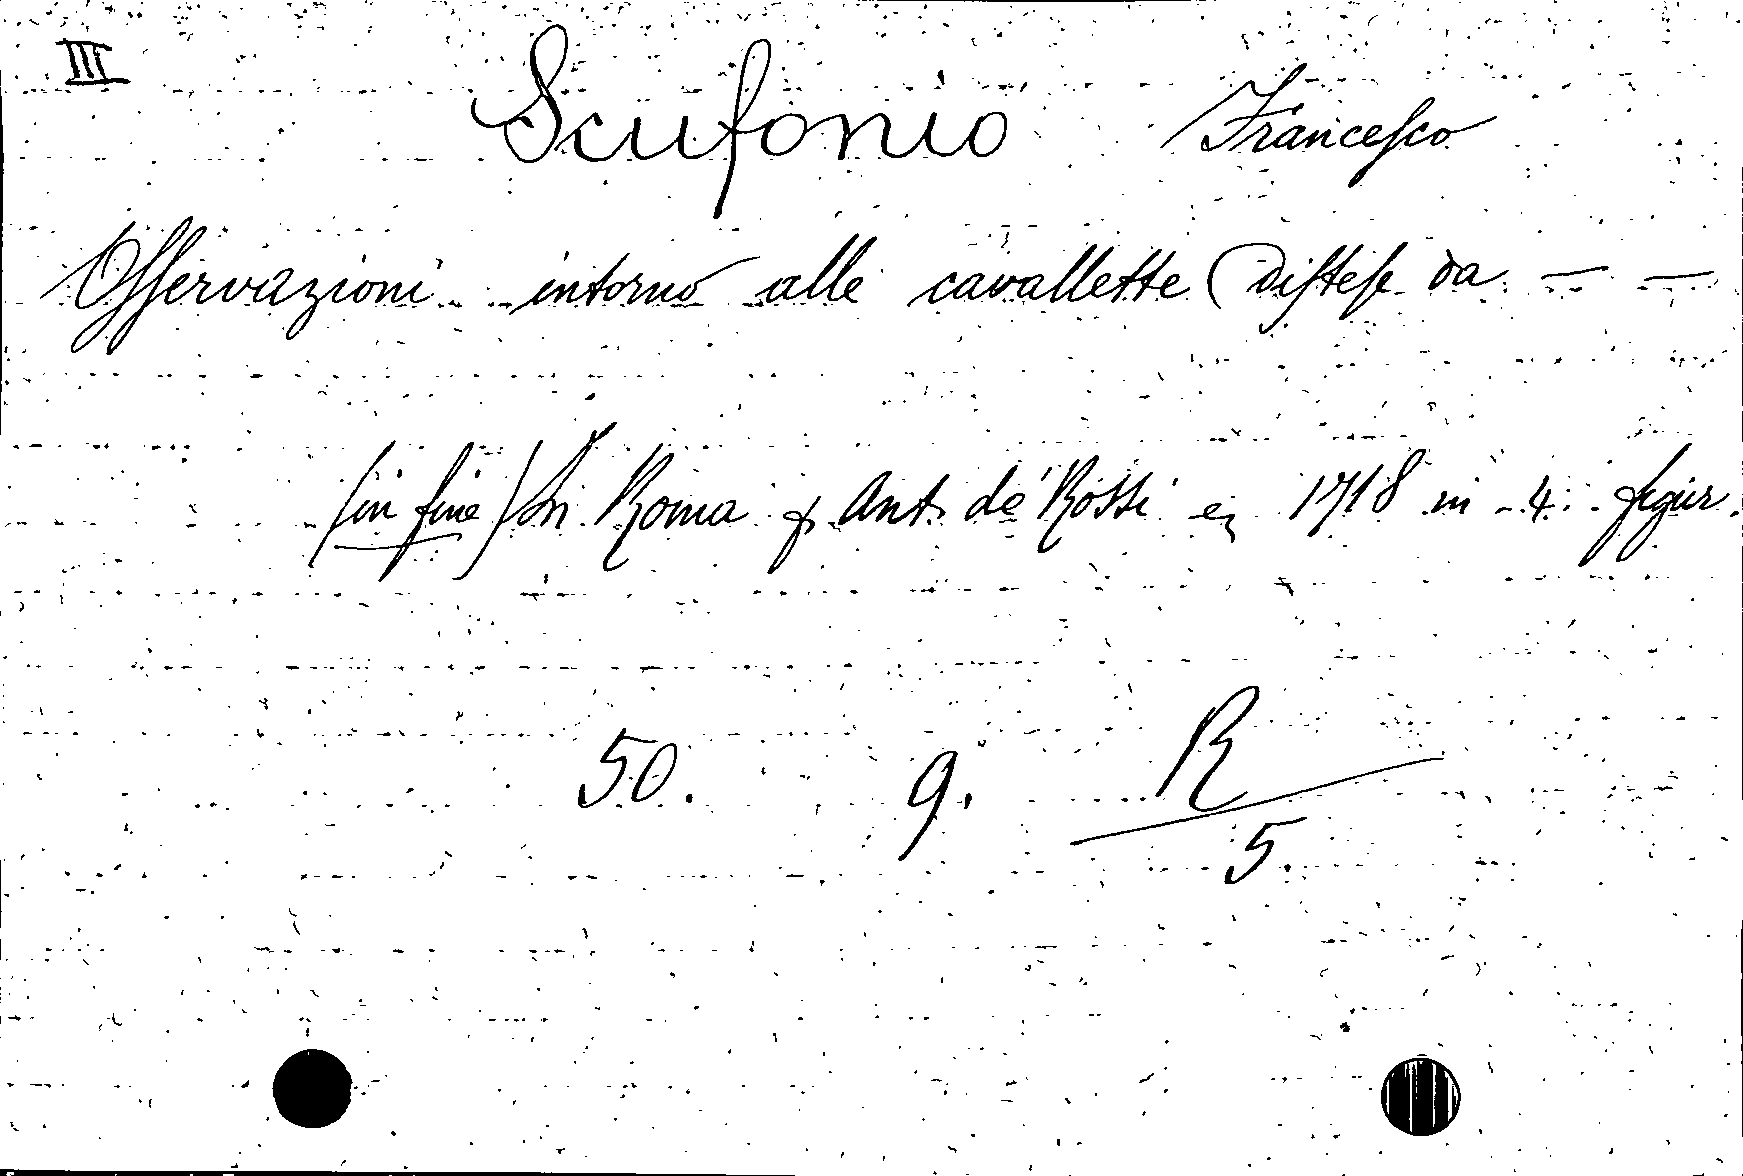 III Scufonio Francesco
Osservazioni intorno alle cavallette (distese da — —
(in fine) In Roma p. Ant. de' Rossi 1718 in 4. figur.
50. 9. R
5.